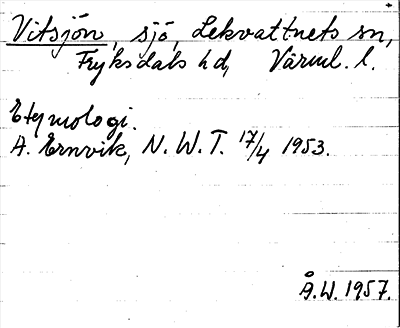 Vitsjön, sjö, Lekvattnets sn,
Fryksdals hd, Värml. l.
Etymologi.
A. Ernvik, N. W. T. 17/4 1953.
Å.W. 1957.